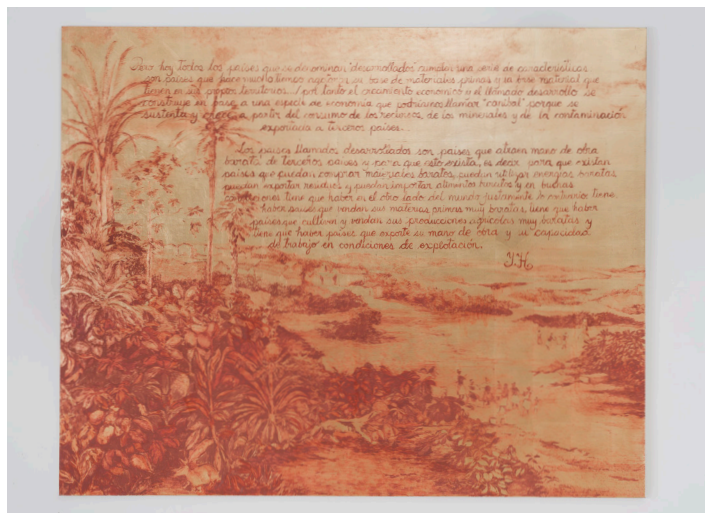 Pero hoy todos los países que se denominan "desarrollados" cumplen una serie de características
son países que hace mucho tiempo agotaron su base de materias primas y su base material que
tienen en sus propios territorios. / por tanto el crecimiento económico y el llamado desarrollo se
construye en base a una especie de economía que podríamos llamar "caníbal" porque se
sustenta y crece a partir del consumo de los recursos, de los minerales y de la contaminación
exportada a terceros países...
Los países llamados desarrollados son países que atraen mano de obra
barata de terceros países y para que esto exista, es decir para que existan
países que puedan comprar materiales baratos, puedan utilizar energías baratas
puedan exportar residuos y puedan importar alimentos baratos y en buenas
condiciones tiene que haber en el otro lado del mundo justamente lo contrario tiene
haber países que vendan sus materias primas muy baratas, tiene que haber
países que cultiven y vendan sus producciones agrícolas muy baratas y
tiene que haber países que exporte su mano de obra y su capacidad
de trabajo en condiciones de explotación.
Y.H.